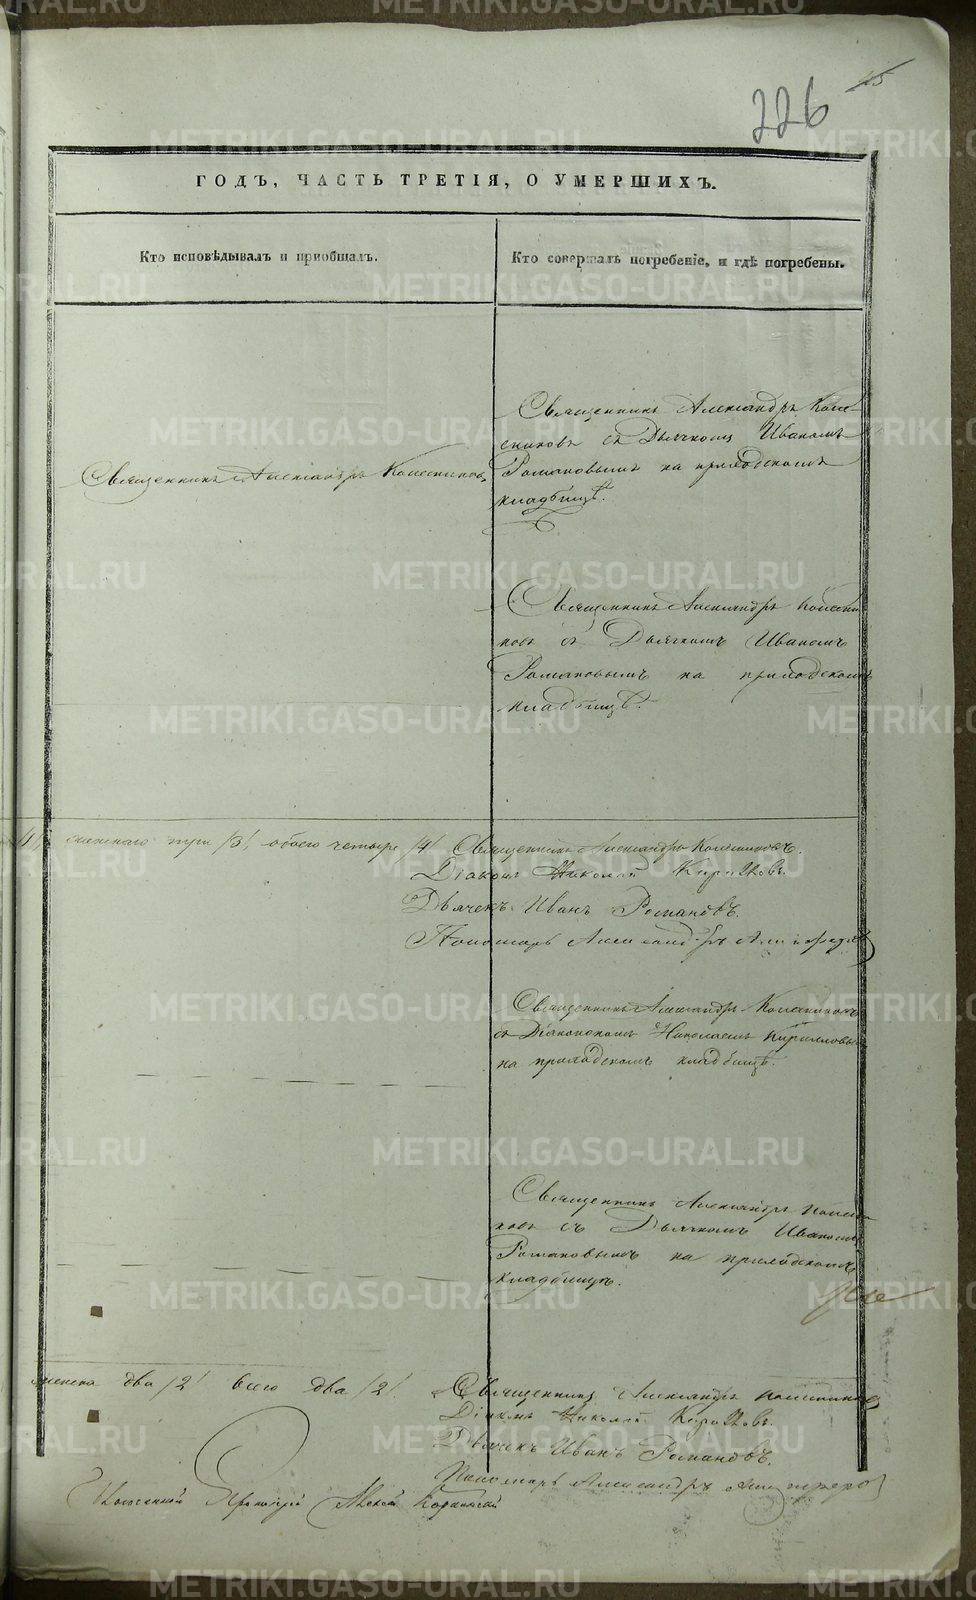 45
226
ГОДЪ, ЧАСТЬ ТРЕТІЯ, О УМЕРШИХЪ.
Кто исповѣдывалъ и пріобщалъ.
Кто совершалъ погребеніе, и гдѣ погребены.
Священникъ Александръ Колесниковъ
Священникъ Александръ Коле-
сниковъ съ Дьячкомъ Иваномъ
Романовымъ на приходскомъ
кладбищѣ.
Священникъ Александръ Колесни
ковъ съ Дьячкомъ Иваномъ
Романовымъ на приходскомъ
кладбищѣ.
женскаго три /3/, обоего четыре /4/
Священникъ Александръ Колесниковъ.
Діаконъ Николай Кирилловъ.
Дьячекъ Иванъ Романовъ.
Пономарь Александръ
Священникъ Александръ Колесниковъ
съ Діакономъ Николаемъ Кирилловымъ
на приходскомъ кладбищѣ.
Священникъ Александръ Колесни
ковъ съ Дьячкомъ Иваномъ
Романовымъ на приходскомъ
кладбищѣ.
два /2/ всего два /2/.
Священникъ Александръ Колесниковъ
Діаконъ Николай Кирилловъ.
Дьячекъ Иванъ Романовъ.
Пономарь Александръ
METRIKI.GASO-URAL.RU